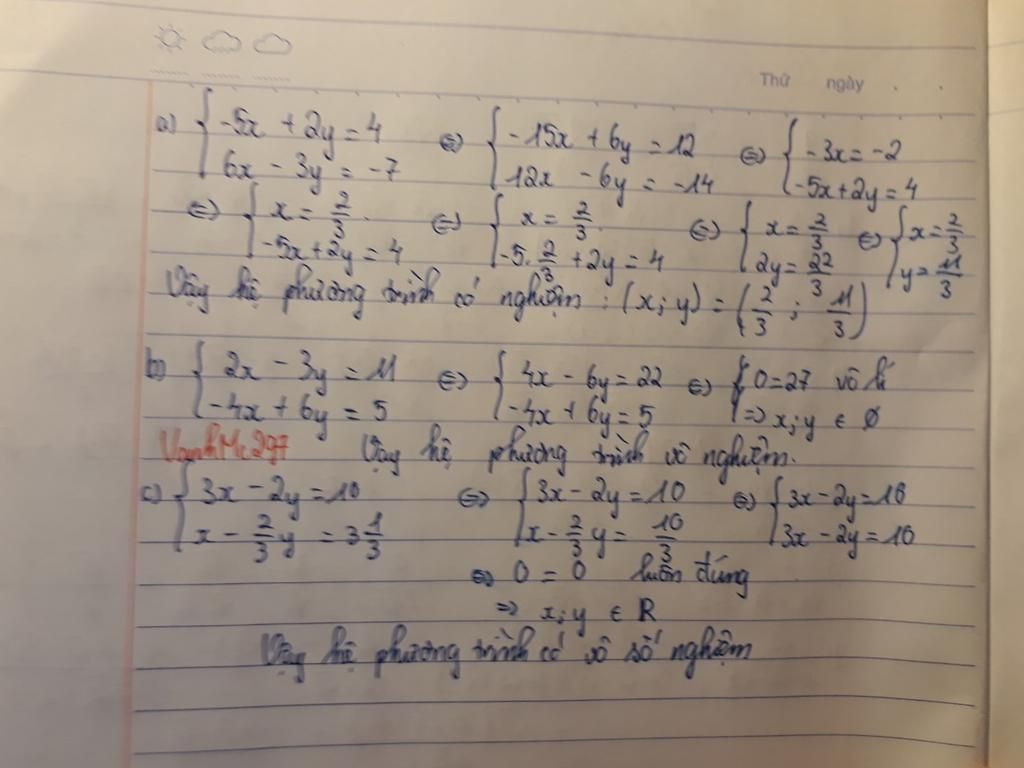 Thứ ngày . .
a) { -5x + 2y = 4 ⇔ { -15x + 6y = 12 ⇔ { -3x = -2
6x - 3y = -7 12x - 6y = -14 -5x + 2y = 4
⇔ { x = 2/3 ⇔ { x = 2/3 ⇔ { x = 2/3 ⇔ { x = 2/3
-5x + 2y = 4 -5. 2/3 + 2y = 4 2y = 22/3 y = 11/3
Vậy hệ phương trình có nghiệm : (x; y) = (2/3 ; 11/3)
b) { 2x - 3y = 11 ⇔ { 4x - 6y = 22 ⇔ { 0 = 27 vô lí
-4x + 6y = 5 -4x + 6y = 5 => x; y ∈ ∅
VanhMc297 Vậy hệ phương trình vô nghiệm.
c) { 3x - 2y = 10 ⇔ { 3x - 2y = 10 ⇔ { 3x - 2y = 10
x - 2/3 y = 3 1/3 x - 2/3 y = 10/3 3x - 2y = 10
⇔ 0 = 0 luôn đúng
=> x; y ∈ R
Vậy hệ phương trình có vô số nghiệm